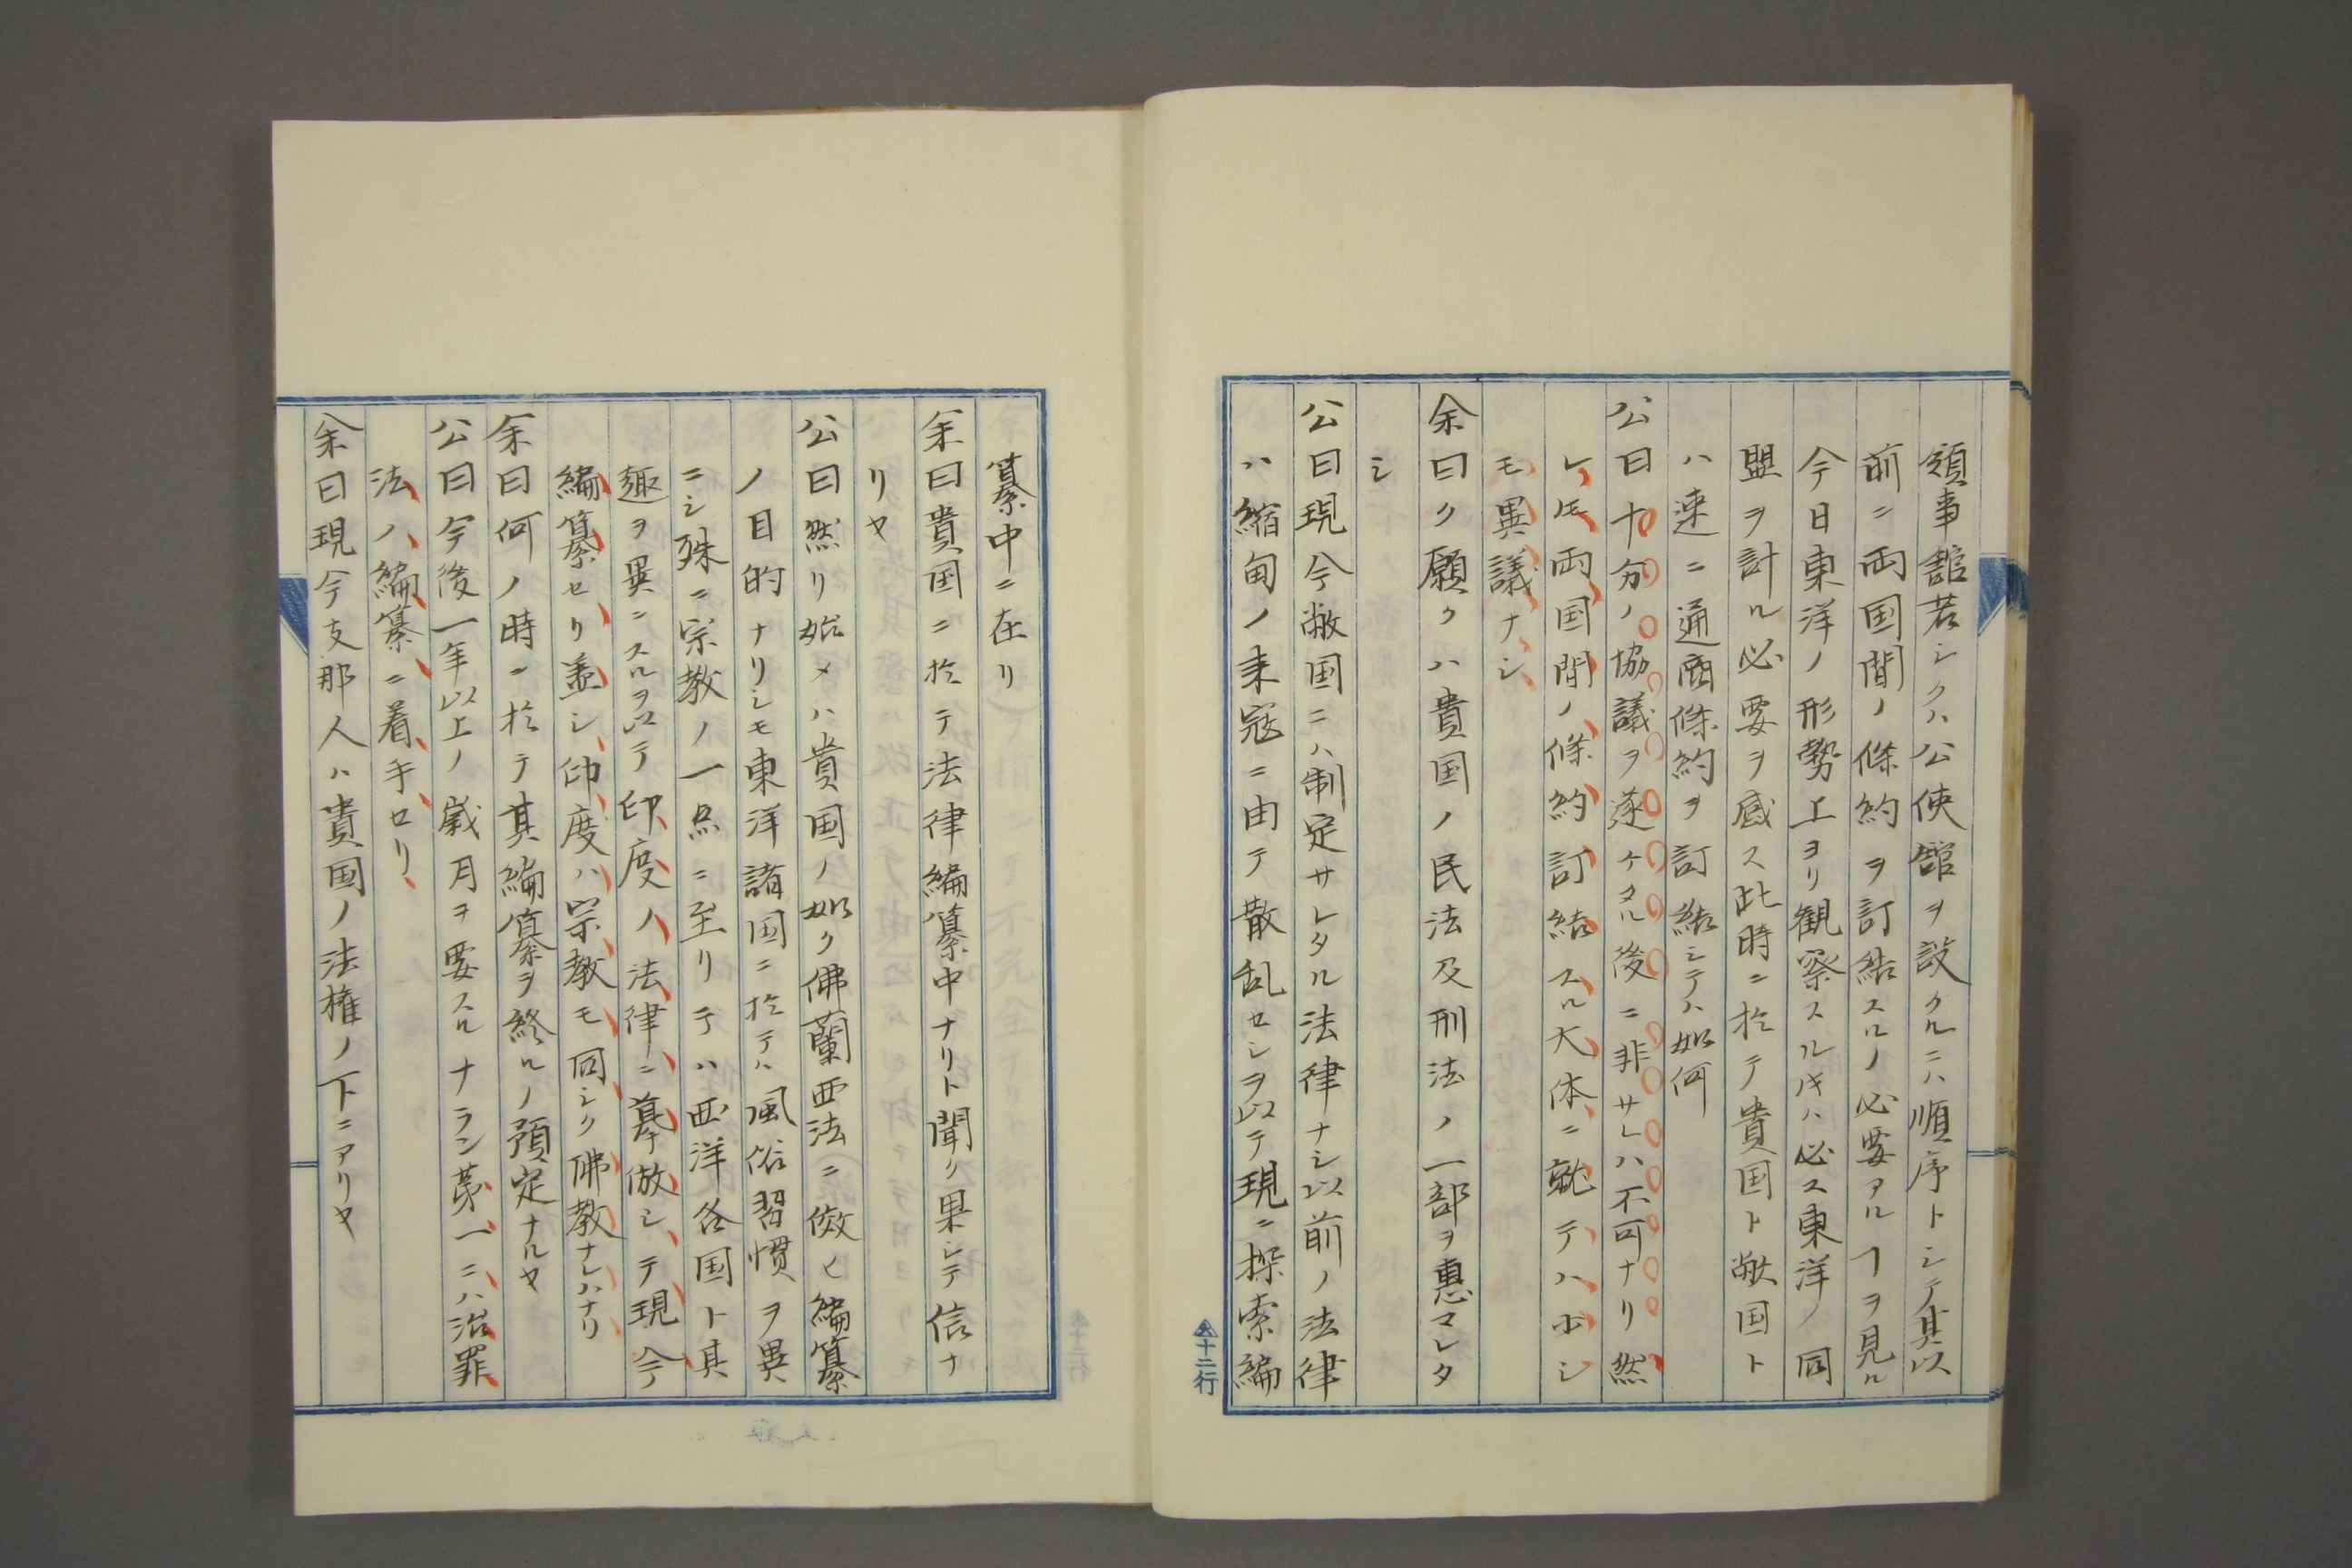 領事舘若シクハ公使舘ヲ設クルニハ順序トシテ其以
前ニ両国間ノ條約ヲ訂結スルノ必要アルヿヲ見ル
今日東洋ノ形勢上ヨリ観察スルキハ必ス東洋ノ同
盟ヲ計ル必要ヲ感ス此時ニ於テ貴国ト敝国ト
ハ速ニ通商條約ヲ訂結シテハ如何
公曰十分ノ協議ヲ遂ケタル後ニ非サレハ不可ナリ然
レ𪜈両国間ノ條約訂結スル大体ニ就テハ少シ
モ異議ナシ
余曰ク願クハ貴国ノ民法及刑法ノ一部ヲ惠マレタ
シ
公曰現今敝国ニハ制定サレタル法律ナシ以前ノ法律
ハ緬甸ノ来寇ニ由テ散乱セシヲ以テ現ニ探索編
六十二行
纂中ニ在リ
余曰貴国ニ於テ法律編纂中ナリト聞ク果シテ信ナ
リヤ
公曰然リ始メハ貴国ノ如ク佛蘭西法ニ倣ヒ編纂
ノ目的ナリシモ東洋諸国ニ於テハ風俗習慣ヲ異
ニシ殊ニ宗教ノ一点ニ至リテハ西洋各国ト其
趣ヲ異ニスルヲ以テ印度ノ法律ニ摹倣シテ現今
編纂セリ盖シ印度ハ宗教モ同シク佛教ナレハナリ
余曰何ノ時ニ於テ其編纂ヲ終ルノ預定ナルヤ
公曰今後一年以上ノ歳月ヲ要スルナラン第一ニハ治罪
法ノ編纂ニ着手セリ
余曰現今支那人ハ貴国ノ法権ノ下ニアリヤ